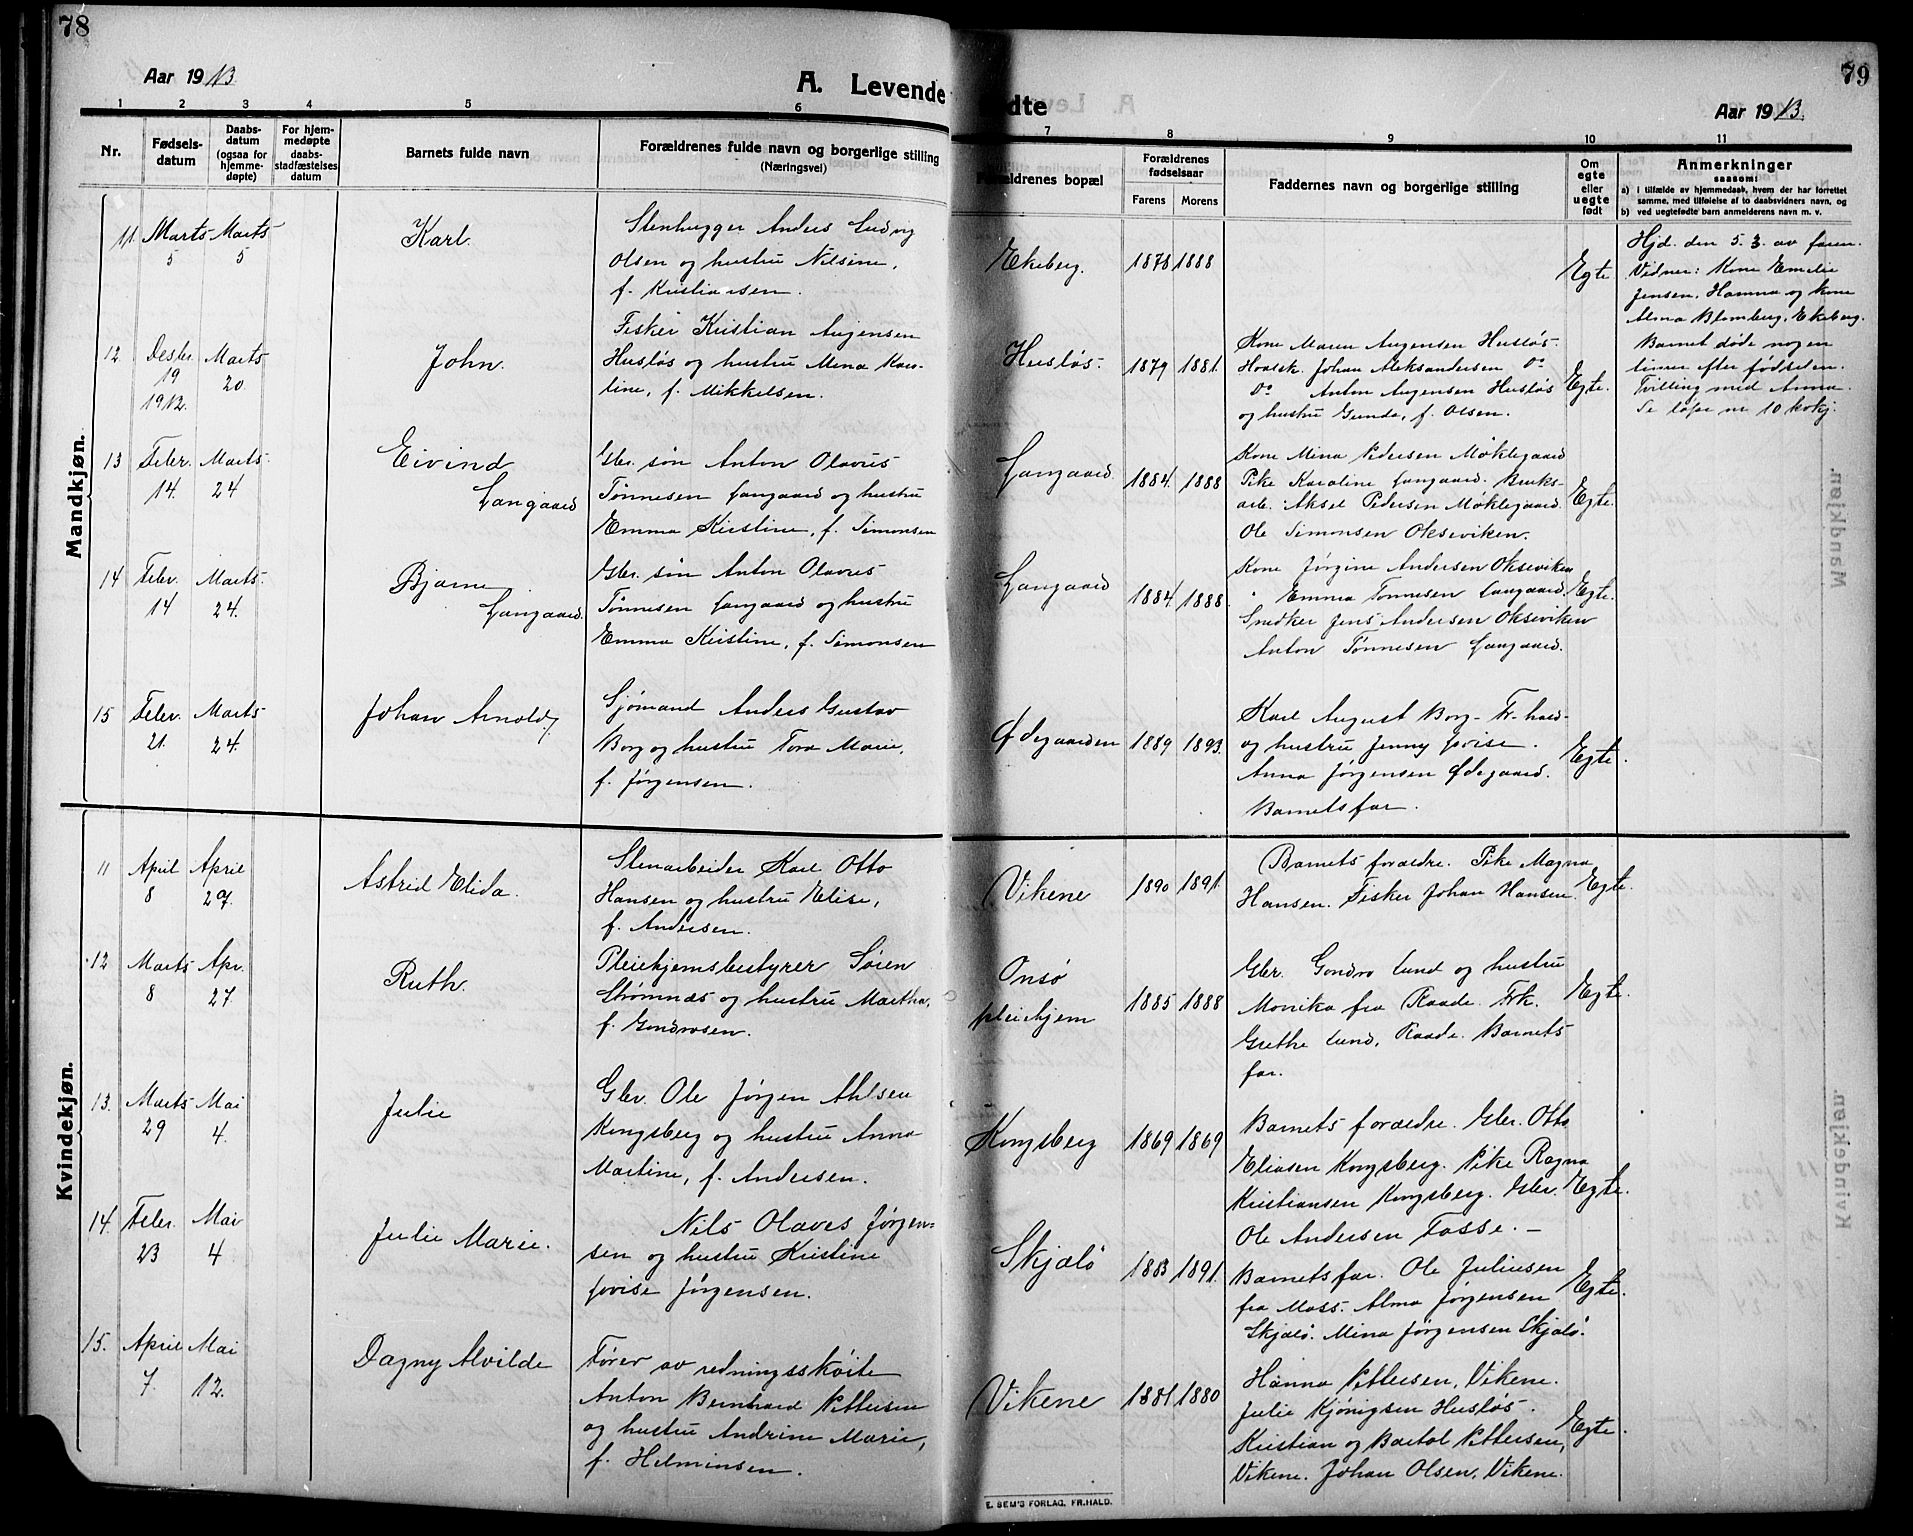 78
Aar 1913
A. Levende
1 2 3 4 5 6
Nr.
Fødsels-
datum
Daabs-
datum
(ogsaa for
hjemme-
døpte)
For hjem-
medøpte
daabs-
stadfæstelses
datum
Barnets fulde navn
Forældrenes fulde navn og borgerlige stilling
(Næringsvei)
Mandkjøn.
11. Marts 5 Marts 5
Karl.
Stenhugger Anders Ludvig
Olsen og hustru Nilsine,
f. Kristiansen.
12 Desbr. 19 1912. Marts 20
John.
Fisker Kristian Augensen
Husløs og hustru Mina Karo-
line, f. Mikkelsen.
13 Febr. 14. Marts 24
Eivind
Langaard
Gbr. søn Anton Olavus
Tønnesen Langaard og hustru
Emma Kristine, f. Simonsen
14 Febr. 14 Marts 24.
Bjarne
Langaard.
Gbr. søn Anton Olavus
Tønnesen Langaard og hustru
Emma Kristine, f. Simonsen
15 Febr. 21. Marts 24.
Johan Arnold
Sjømand Anders Gustav
Borg og hustru Tora Marie,
f. Jørgensen.
Kvindekjøn.
11 April 8 April 27.
Astrid Elida.
Stenarbeider Karl Otto
Hansen og hustru Elise,
f. Andersen.
12 Marts 8 Apr. 27
Ruth.
Pleiehjemsbestyrer Søren
Strømnæs og hustru Martha,
f. Gondrosen.
13. Marts 29 Mai 4.
Julie
Gbr. Ole Jørgen Ahlsen
Kongsberg og hustru Anna
Martine, f. Andersen.
14. Febr. 23 Mai 4
Julie Marie.
Nils Olaves Jørgen-
sen og hustru Kristine
Lovise Jørgensen.
15. April 7. Mai 12.
Dagny Alvilde
Fører av redningsskøite
Anton Bernhard Pettersen
og hustru Andrine Marie,
f. Helminsen.
79
dte
Aar 1913.
7 8 9 10 11
Forældrenes bopæl
Forældrenes
fødselsaar
Farens Morens
Faddernes navn og borgerlige stilling
Om
egte
eller
uegte
født
Anmerkninger
saasom:
a) i tilfælde av hjemmedaab, hvem der har forrettet
samme, med tilføielse af to daabsvidners navn, og
b) ved uegtefødte barn anmelderens navn m. v.
Ekeberg. 1878 1888
Egte
Hjd. den 5. 3. av faren.
Vidner: Kone Emelie
Jensen, Hamna og kone
Alma Blomberg, Ekeberg.
Barnet døde nogen
timer efter fødselen.
Husløs. 1879 1881.
Kone Maren Augensen Husløs.
Hvalsk. Johan Aleksandersen Do
Do Anton Augensen Husløs
og hustru Gunda, f. Olsen.
Egte.
Tvilling med Anna.
Se løpe nr 10 kvkj.
Langaard 1884. 1888
Kone Mina Pedersen Møklegaard
Pike Karoline Langaard. Bruks-
arb. Aksel Pedersen Møklegaard.
Ole Simonsen Okseviken.
Egte.
Langaard 1884. 1888.
Kone Jørgine Andersen Okseviken
" Emma Tønnesen Langaard.
Snedker Jens Andersen Okseviken
Anton Tønnesen Langaard.
Egte.
Ødegaarden 1889 1893.
Karl August Borg - Fr-hald-
og hustru Jenny Lovise.
Anna Jørgensen Ødegaard.
Barnets far.
Egte.
Vikene 1890 1891.
Barnets forældre. Pike Magna
Hansen. Fisker Johan Hansen
Egte.
Onsø
pleiehjem 1885 1888
Gbr. Gondro Lund og hustru
Monika fra Raade. Frk.
Grethe Lund, Raade. Barnets
far.
Egte.
Kongsberg 1869 1869
Barnets forældre. Gbr. Otto
Eliasen Kongsberg. Pike Ragna
Kristiansen Kongsberg. Gbr.
Ole Andersen Fosse. —
Egte.
Skjælø 1883 1891.
Barnets far. Ole Juliusen
fra Moss. Alma Jørgensen
Skjælø. Mina Jørgensen Skjælø.
Egte.
Vikene 1881 1880
Hanna Pettersen, Vikene.
Julie Kjønigsen Husløs.
Kristian og Bartol Pettersen,
Vikene. Johan Olsen, Vikene.
Egte.
E. SEM'S FORLAG, FR.HALD.